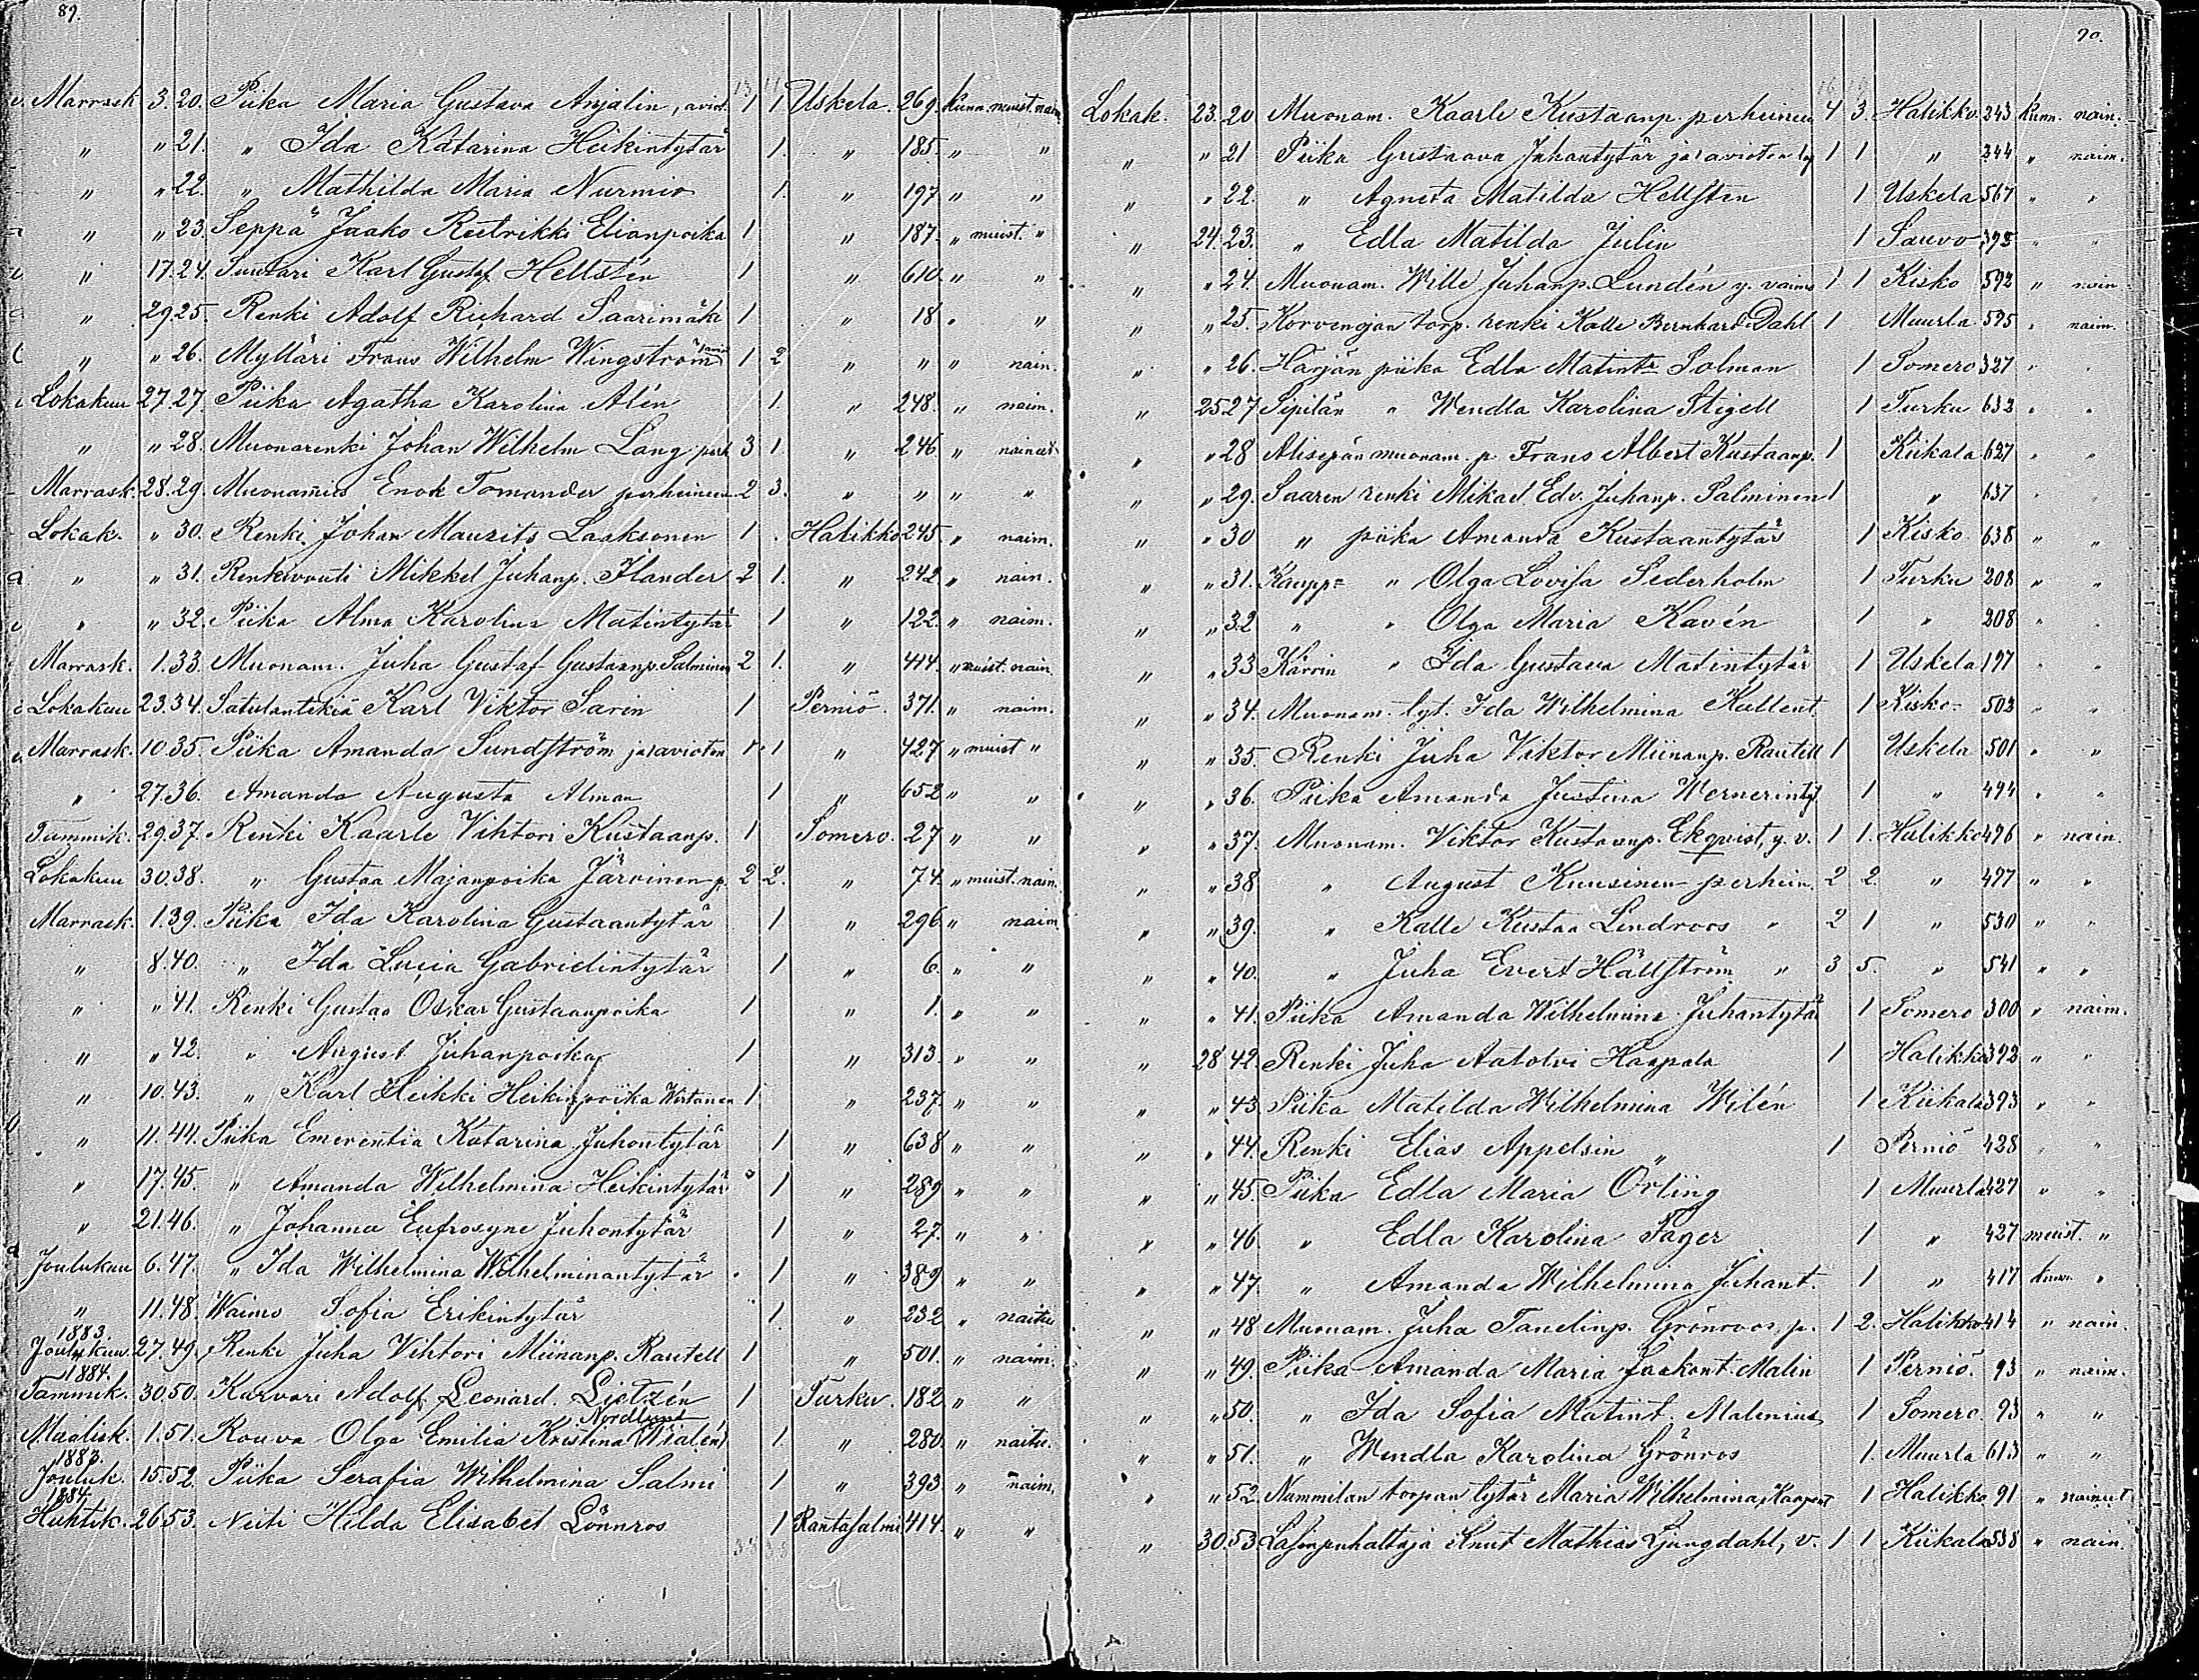 89.
Marrask 3. 20. Piika Maria Gustava Anjalin, aviot. 1 1 Uskela. 269. kunn. muist. naim.
" " 21. " Ida Katarina Heikintytär 1. " 185. " "
" " 22. " Mathilda Maria Nurmio 1. " 197 " "
" " 23. Seppä Jaako Reetrikki Elianpoika 1 " 187. " muist. "
" 17. 24. Suutari Karl Gustaf Hellstén 1 " 610. " "
" 29 25. Renki Adolf Richard Saarimäki 1 " 18. " "
" " 26. Mylläri Frans Wilhelm Wingström 1 2 " " " nain.
Lokakuu 27. 27. Piika Agatha Karolina Alén 1. " 248. " naim.
" " 28. Muonarenki Johan Wilhelm Lang perh 3 1. " 246 " nainut
Marrask. 28. 29. Muonamies Enok Tomander perheineen 2 3. " " " "
Lokak. " 30. Renki Johan Maurits Laaksonen 1 Halikko 245. " naim.
" " 31. Renkivouti Mikkel Juhanp. Ilander 2 1. " 242 " nain.
" " 32. Piika Alma Karolina Matintytär 1 " 122. " naim.
Marrask. 1. 33. Muonam. Juha Gustaf Gustaanp. Salminen 2 1. " 414. " muist. nain.
Lokakuu 23. 34. Satulantekiä Karl Viktor Sarin 1 Perniö. 371. " naim.
Marrask. 10. 35. Piika Amanda Sundström ja 1 avioton 1 " 427 " muist "
" 27. 36. Amanda Augusta Alman 1 " 652 " "
Tammik. 29. 37. Renki Kaarle Vihtori Kustaanp. 1 Somero. 27 " "
Lokakuu 30. 38. " Gustaa Majanpoika Järvinen p. 2 2. " 74. " muist. nain.
Marrask. 1. 39. Piika Ida Karolina Gustaantytär 1 " 296 " naim
" 8. 40. " Ida Lucia Gabrielintytär 1 " 6. " "
" " 41. Renki Gustaa Oskar Gustaanpoika 1 " 1. " "
" " 42. " August Juhanpoika 1 " 313. " "
" 10. 43. " Karl Heikki Heikinpoika Wirtanen 1 " 237. " "
" 11. 44. Piika Emerentia Katarina Juhontytär 1 " 638 " "
" 17. 45. " Amanda Wilhelmina Heikintytär 1 " 289 " "
" 21. 46. " Johanna Eufrosyne Juhontytär 1 " 27. " "
Joulukuu 6. 47. " Ida Wilhelmina Wilhelminantytär 1 " 389 " "
" 11. 48. Waimo Sofia Erikintytär 1 " 232 " naitu
1883.
Joulukuu. 27. 49. Renki Juha Vihtori Miinanp. Rautell 1 " 501. " naim.
1884.
Tammik. 30. 50. Karvari Adolf Leonard Lietzén 1 Turku. 182 " "
Nordlund
Maalisk. 1. 51. Rouva Olga Emilia Kristina (Wialén) 1. " 280. " naitu.
1883.
Jouluk. 15. 52. Piika Serafia Wilhelmina Salmi 1 " 393. " naim,
1884
Huhtik. 26 53. Neiti Hilda Elisabet Lönnros 1 Rantasalmi 414. " "
90.
Lokak. 23. 20 Muonam. Kaarle Kustaanp. perheineen 4 3. Halikko. 243 kunn. nain.
" " 21 Piika Gustaava Juhantytär ja 1 avioton 1 1 " 344 " naim.
" " 22. " Agneta Matilda Hellsten 1 Uskela 567 " "
" 24. 23. " Edla Matilda Julin 1 Sauvo 395 " "
" " 24. Muonam. Wille Juhanp. Lundén y. vaimo 1 1 Kisko 592 " nain
" " 25. Korvenojan torp. renki Kalle Bernhard Dahl 1 Muurla 595 " naim.
" " 26. Härjän piika Edla Matint: Solman 1 Somero 327 " "
" 25 27 Sipilän " Wendla Karolina Stigell 1 Turku 632 " "
" " 28 Alisepän muonam. p. Frans Albert Kustaanp. 1 Kiikala 627 " "
" " 29. Saaren renki Mikael Edv. Juhanp. Salminen 1 " 637 "
" " 30 " piika Amanda Kustaantytär 1 Kisko 638 " "
" " 31. Kaupp= " Olga Lovisa Sederholm 1 Turku 208 " "
" " 32 " " Olga Maria Kavén 1 " 208 " "
" " 33 Kärrin " Ida Gustava Matintytär 1 Uskela 197 " "
" " 34. Muonam. tyt. Ida Wilhelmina Kallent. 1 Kisko 503 " "
" " 35. Renki Juha Viktor Miinanp. Rautell 1 Uskela 501 " "
" " 36. Piika Amanda Justina Wernerinty 1 " 494 " "
" " 37. Muonam. Viktor Kustaanp. Ekqvist, y. v. 1 1. Halikko 496 " nain.
" " 38 " August Kuusinen perhein. 2 2. " 497 " "
" " 39. " Kalle Kustaa Lindroos " 2 1 " 530 " "
" " 40. " Juha Evert Hällström " 3 5. " 541 " "
" " 41. Piika Amanda Wilhelmina Juhantytär 1 Somero 300 " naim.
" 28 42. Renki Juha Aatolvi Haapala 1 Halikko 392 " "
" " 43 Piika Matilda Wilhelmina Wilén 1 Kiikala 393 " "
" " 44. Renki Elias Appelsin 1 Perniö 428 " "
" " 45. Piika Edla Maria Örling 1 Muurla 427 " "
" " 46 " Edla Karolina Fager 1 " 427 muist. "
" " 47. " Amanda Wilhelmina Juhant. 1 " 417 kunn. "
" " 48 Muonam. Juha Tanelinp. Grönroos, p. 1 2. Halikko 414 " nain.
" " 49. Piika Amanda Maria Jaakont. Malin 1 Perniö. 93 " naim.
" " 50. " Ida Sofia Matint. Malenius 1 Somero. 93 " "
" " 51. " Wendla Karolina Grönros 1. Muurla 613 " "
" " 52. Nummilan torpan tytär Maria Wilhelmina 1 Halikko 91 " nainut
" 30. 53. Lasinpuhaltaja Knut Mathias Ljungdahl, v. 1 1 Kiikala 538 " nain.